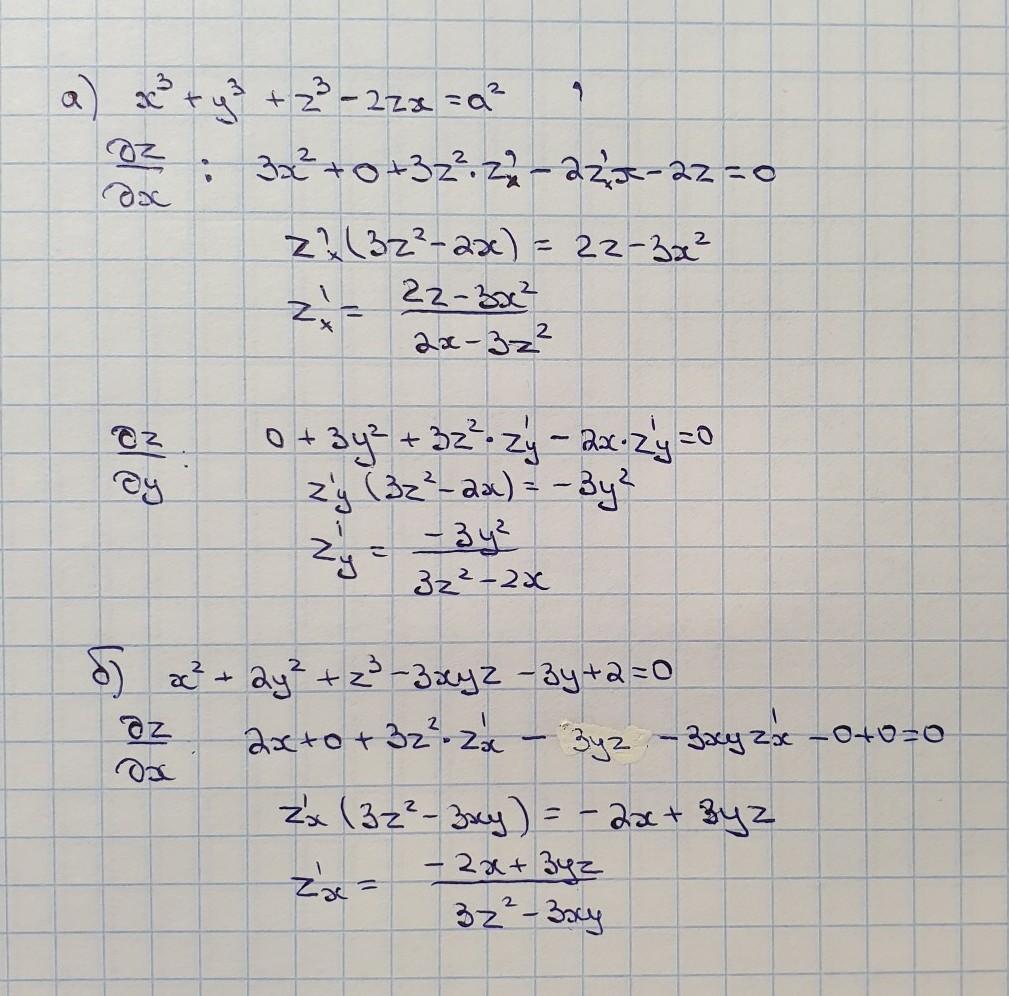 а) x³ + y³ + z³ - 2zx = a²
∂z/∂x : 3x² + 0 + 3z² · z'ₓ - 2z'ₓx - 2z = 0
z'ₓ (3z² - 2x) = 2z - 3x²
z'ₓ = (2z - 3x²)/(2x - 3z²)
∂z/∂y : 0 + 3y² + 3z² · z'y - 2x · z'y = 0
z'y (3z² - 2x) = -3y²
z'y = (-3y²)/(3z² - 2x)
б) x² + 2y² + z³ - 3xyz - 3y + 2 = 0
∂z/∂x : 2x + 0 + 3z² · z'x - 3yz - 3xyz'x - 0 + 0 = 0
z'x (3z² - 3xy) = -2x + 3yz
z'x = (-2x + 3yz)/(3z² - 3xy)